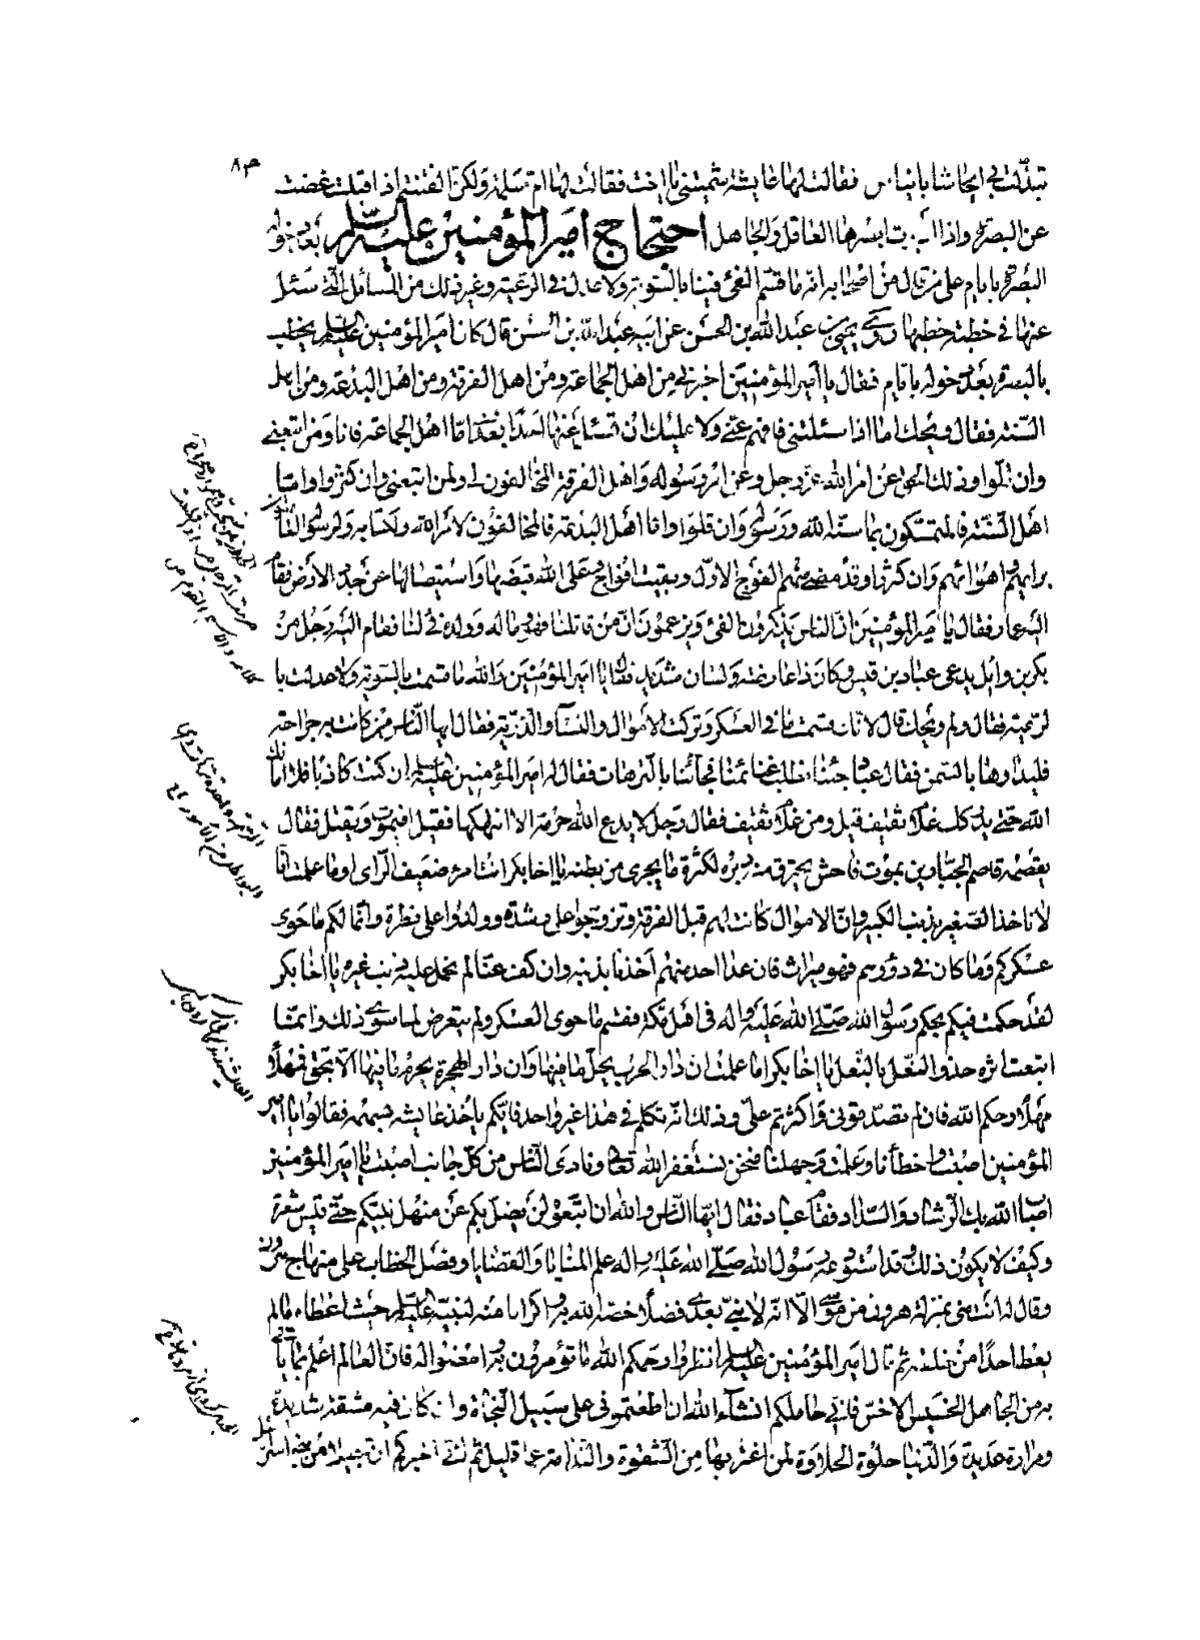 تبدلت بي ايحاشا بايناس فقالت لها عايشة شمتيني يا اخت فقالت لها ام سلمة ولكن الفتنة اذا اقبلت غضت
عن البصر واذا ادبرت ابصرها العاقل والجاهل احتجاج امير المؤمنين عليه السلم بعد دخوله
البصرة بايام على من قال من اصحابه انه ما قسم الفئ فينا بالسوية ولا عدل في الرعية وغير ذلك من المسائل التي سئل
عنها في خطبة خطبها روى يحيى بن عبد الله بن الحسن عن ابيه عبد الله بن الحسن قال كان امير المؤمنين عليه السلم يخطب
بالبصرة بعد دخوله بايام فقال يا امير المؤمنين اخبرني من اهل الجماعة ومن اهل الفرقة ومن اهل البدعة ومن اهل
السنة فقال ويحك اما اذا سئلتني فافهم عني ولا عليك ان تسئل عنها احدا بعدي اما اهل الجماعة فانا ومن اتبعني
وان قلوا وذلك الحق عن امر الله عز وجل وعن امر رسوله واهل الفرقة المخالفون لي ولمن اتبعني وان كثروا واما
اهل السنة فالمتمسكون بما سنه الله ورسوله وان قلوا واما اهل البدعة فالمخالفون لامر الله ولكتابه ولرسوله العاملون
برايهم واهوائهم وان كثروا وقد مضى منهم الفوج الاول وبقيت افواج وعلى الله قبضها واستيصالها عن جدد الارض فقام
اليه عمار فقال يا امير المؤمنين ان الناس يذكرون الفئ ويزعمون ان من قاتلنا فهو وماله وولده فئ لنا فقام اليه رجل من
بكر بن وائل يدعى عباد بن قيس وكان ذا عارضة ولسان شديد فقال يا امير المؤمنين والله ما قسمت بالسوية ولا عدلت با
لرعية فقال ولم ويحك قال لانك قسمت ما في العسكر وتركت الاموال والنساء والذرية فقال ايها الناس من كانت به جراحة
فليداوها بالسمن فقال عباد جئنا نطلب غنائمنا فجائنا بالترهات فقال له امير المؤمنين عليه السلم ان كنت كاذبا فلا اماتك
الله حتى يدركك غلام ثقيف قيل ومن غلام ثقيف فقال رجل لا يدع الله حرمة الا انتهكها فقيل افيموت او يقتل فقال
يقصمه قاصم الجبارين بموت فاحش يحترق منه دبره لكثرة ما يجرى من بطنه يا اخا بكر انت امرء ضعيف الراى اوما علمت انا
لا ناخذ الصغير بذنب الكبير وان الاموال كانت لهم قبل الفرقة وتزوجوا على رشدة وولدوا على فطرة وانما لكم ما حوى
عسكركم وما كان في دورهم فهو ميراث فان عدا احد منهم اخذناه بذنبه وان كف عنا لم نحمل عليه ذنب غيره يا اخا بكر
لقد حكمت فيكم بحكم رسول الله صلى الله عليه واله في اهل مكة فقسم ما حوى العسكر ولم يتعرض لما سوى ذلك وانما
اتبعت اثره حذو النعل بالنعل يا اخا بكر اما علمت ان دار الحرب يحل ما فيها وان دار الهجرة يحرم ما فيها الا بحق فمهلا
مهلا رحمكم الله فان لم تصدقوني واكثرتم علي وذلك انه تكلم في هذا غير واحد فايكم ياخذ عايشة بسهمه فقالوا يا امير
المؤمنين اصبت واخطأنا وعلمت وجهلنا فنحن نستغفر الله تعالى ونادى الناس من كل جانب اصبت يا امير المؤمنين
اصاب الله بك الرشاد والسداد فقام عباد فقال ايها الناس والله ان اتبعتموه لن يضل بكم عن منهل نبيكم حتى قيس شعرة
وكيف لا يكون ذلك وقد استودعه رسول الله صلى الله عليه واله علم المنايا والقضايا وفصل الخطاب على منهاج هرون
وقال له انت مني بمنزلة هرون من موسى الا انه لا نبي بعدي فضلا خصه الله به واكراما منه لنبيه عليه السلم حيث اعطاه ما لم
يعط احدا من خلقه ثم قال امير المؤمنين عليه السلم انظروا رحمكم الله ما تؤمرون به فامضوا له فان العالم اعلم بما ياتي
به من الجاهل الخسيس الاخس فاني حاملكم انشاء الله ان اطعتموني على سبيل النجاة وان كان فيه مشقة شديدة
ومرارة عديدة والدنيا حلوة الحلاوة لمن اغتر بها من الشقوة والندامة عما قليل ثم اني اخبركم ان جيلا من بني اسرائيل